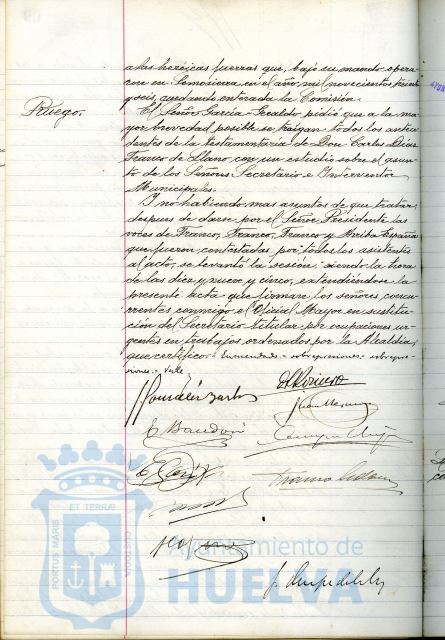 a las heróicas fuerzas que, bajo su mando opera-
ron en Somosierra en el año mil novecientos treinta
y seis, quedando enterada la Comisión.
Ruego.
El Señor García-Geraldo pidió que a la ma-
yor brevedad posible se traigan todos los antece-
dentes de la testamentaria de Don Carlos Díaz
Franco de Llano, con un estudio sobre el asun-
to de los Señores Secretario e Interventor
Municipales.
Y no habiendo mas asuntos de que tratar,
despues de darse por el Señor Presidente las
voces de Franco, Franco, Franco y Arriba España
que fueron contestadas por todos los asistentes
al acto, se levantó la sesión, siendo la hora
de las diez y nueve y cinco, extendiéndose la
presente acta que firman los señores concu-
rrentes conmigo el Oficial Mayor en sustitu-
ción del Secretario titular por ocupaciones ur-
gentes en trabajos ordenados por la Alcaldia,
que certifico.- Enmendado- sobre
Vale.
ET TERRÆ
PORTUS MARIS
CUSTODIA
Ayuntamiento de
HUELVA